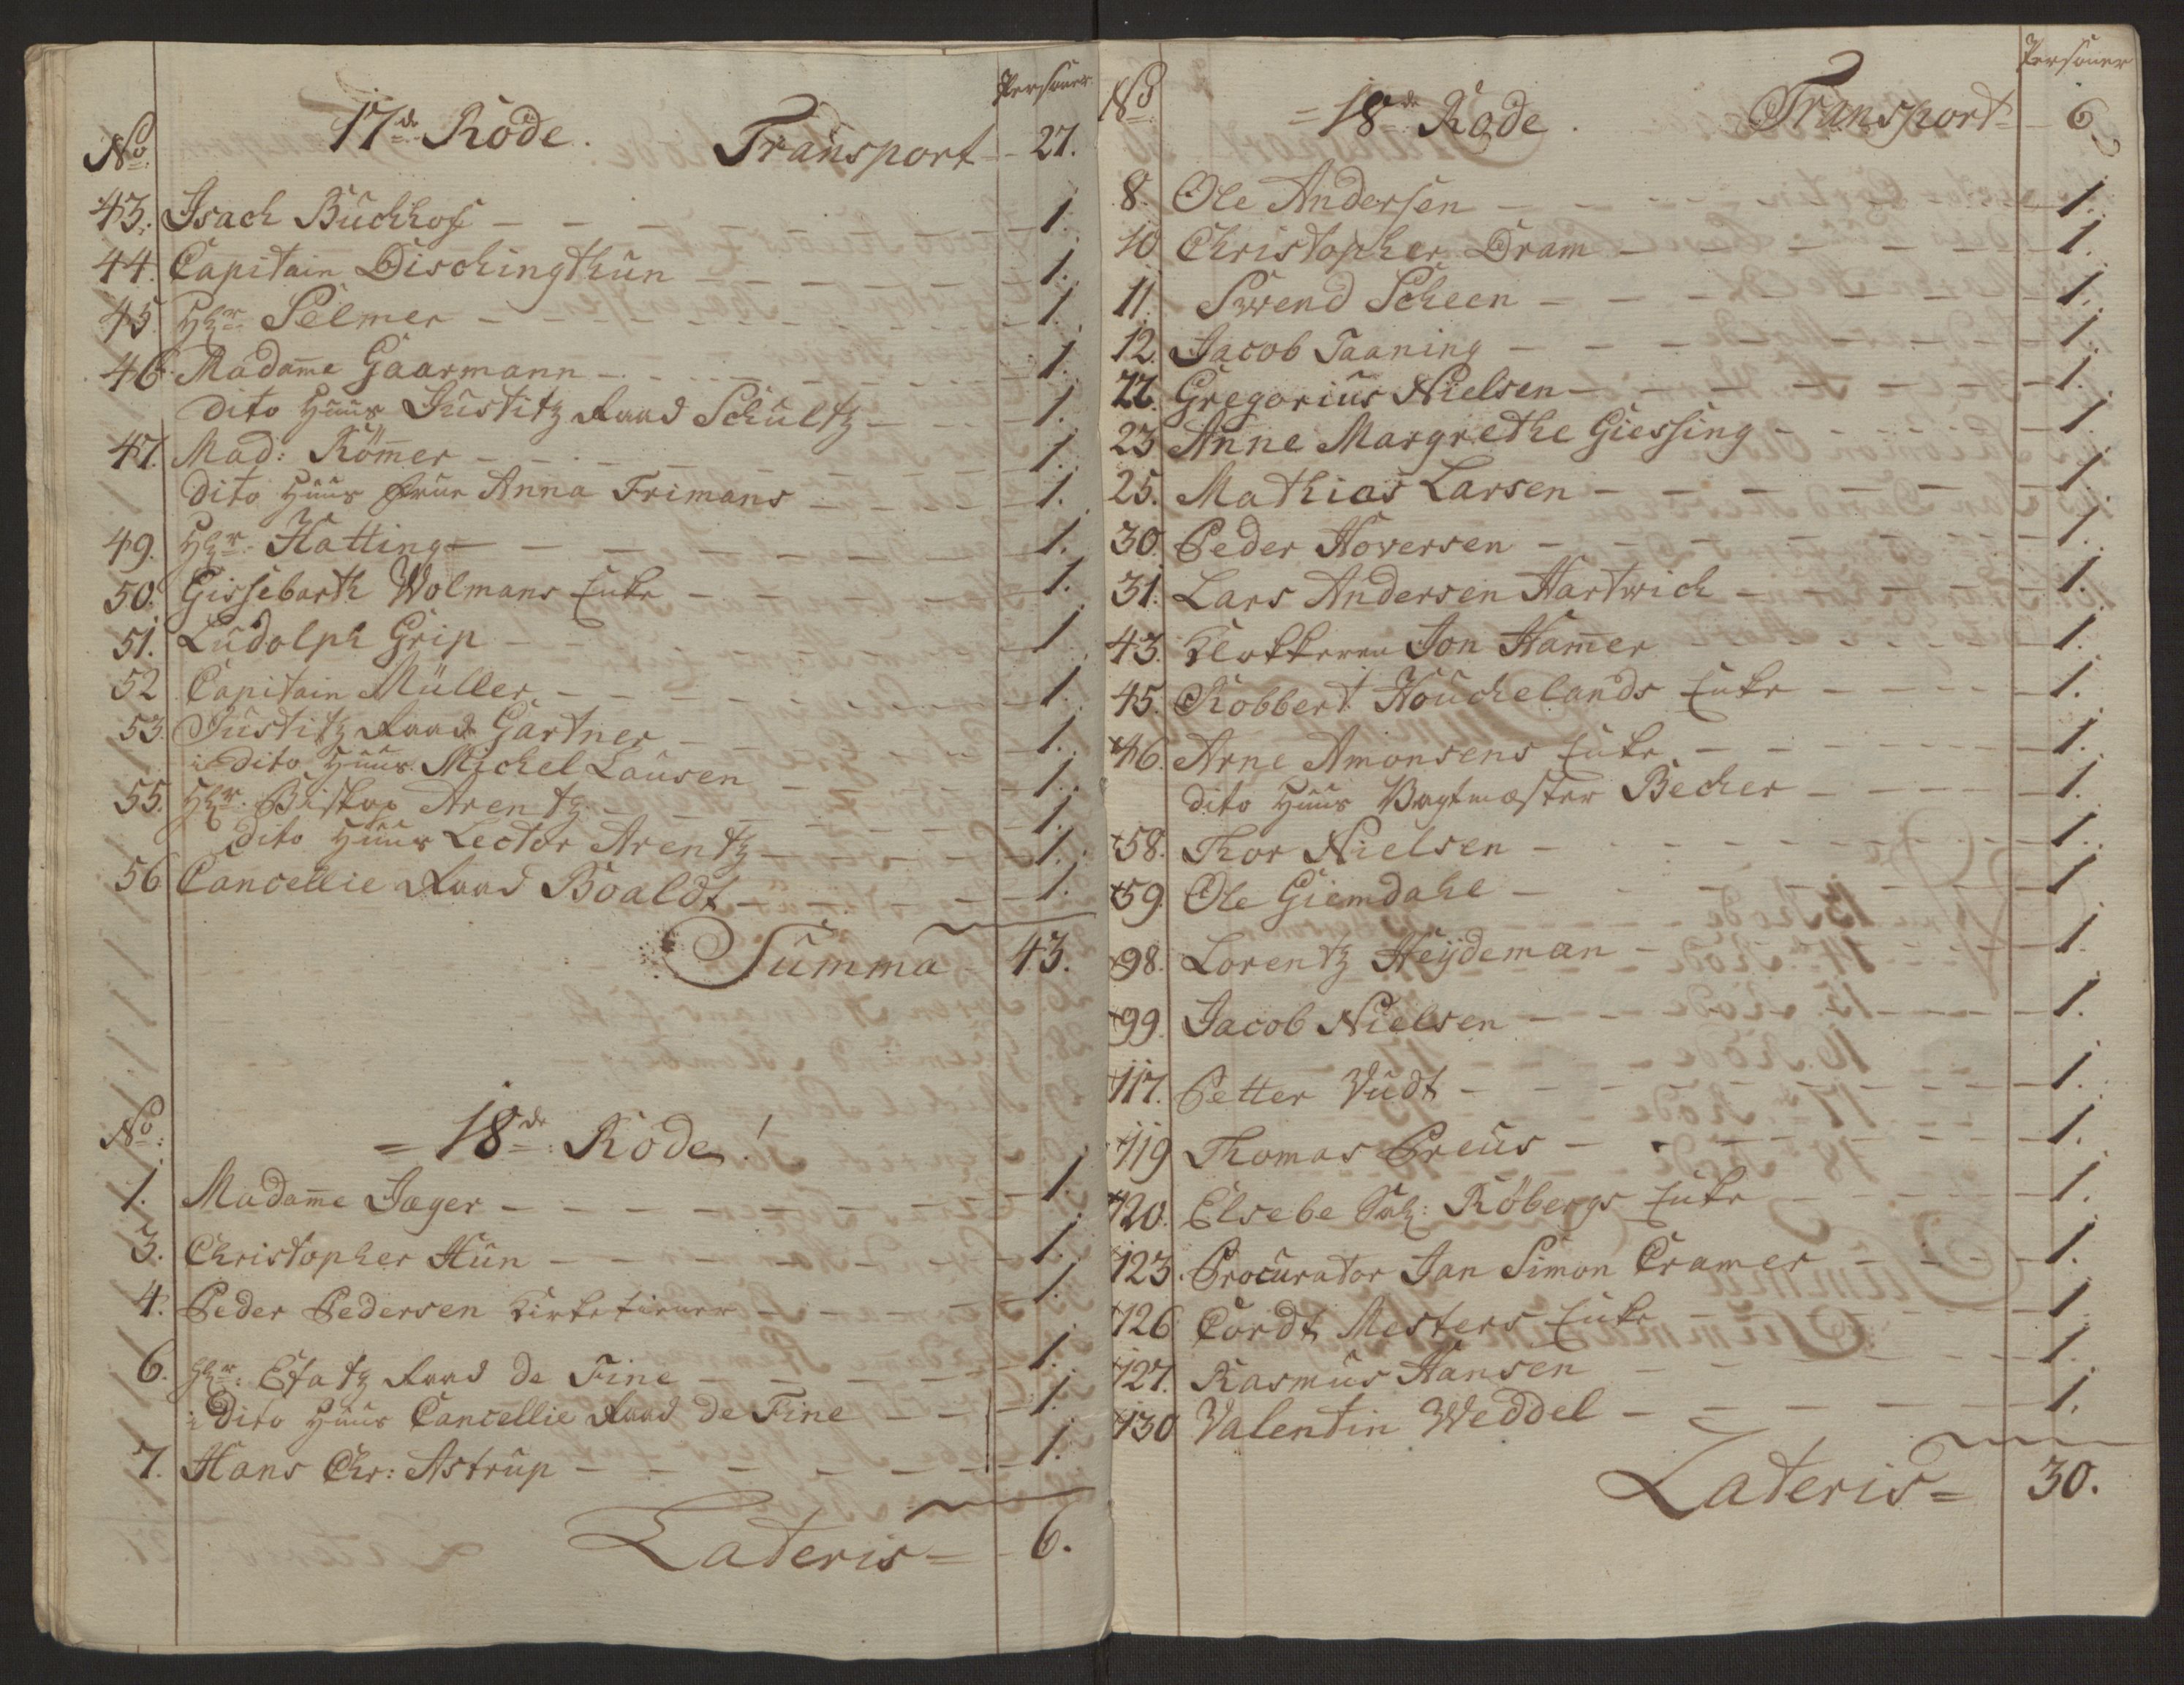 Personer
17de Rode. Transport 27.
No
43. Isach Büchhof 1.
44. Capitain Dischingthun 1.
45. Hr Selmer 1.
46. Madame Gaarmann 1.
dito Huus Justitz Raad Schultz 1.
47. Mad: Römer 1.
dito Huus Frue Anna Frimans 1.
49. Hr Hatting 1.
50. Gissebarth Wolmans Enke 1.
51. Ludolph Grip 1
52 Capitain Müller 1.
53. Justitz Raad Gartner 1.
i dito Huus Michel Lausen 1.
55. Hr. Biskop Arentz 1.
dito Huus Lector Arentz 1.
56 Cancellie Raad Boaldt 1.
Summa 43.
No: = 18de Rode!
1. Madame Jæger 1.
3. Christopher Hün 1.
4. Peder Pedersen Kirketiener 1.
6. Hr: Etatz Raad de Fine 1.
i Dito Huus Cancellie Raad de Fine 1.
7. Hans Chr: Astrup 1.
Lateris = 6.
Personer
No = 18de Rode. Transport 6
8. Ole Andersen 1.
10 Christopher Dram 1.
11. Swend Scheen 1.
12. Jacob Taaning 1.
22. Gregorius Nielsen 1.
23 Anne Margrethe Giessing 1.
25. Mathias Larsen 1.
30. Peder Hoversen 1.
31. Lars Andersen Hartwich 1.
43. Klokkeren Jon Hamer 1.
45. Robbert Houchelands Enke 1.
46. Arne Amonsens Enke 1.
dito Huus Vagtmæster Becher 1.
58. Thor Nielsen 1.
59. Ole Giemdahl 1
98. Lorentz Heydeman 1.
99. Jacob Nielsen 1.
117. Petter Vudt 1.
119 Thomas Preus 1.
120. Elsebe Sal: Röbergs Enke 1.
123. Procurator Jan Simon Cramer 1.
126 Cordt Mesters Enke 1.
127. Rasmus Hansen 1.
130 Valentin Weddel 1.
Lateris = 30.